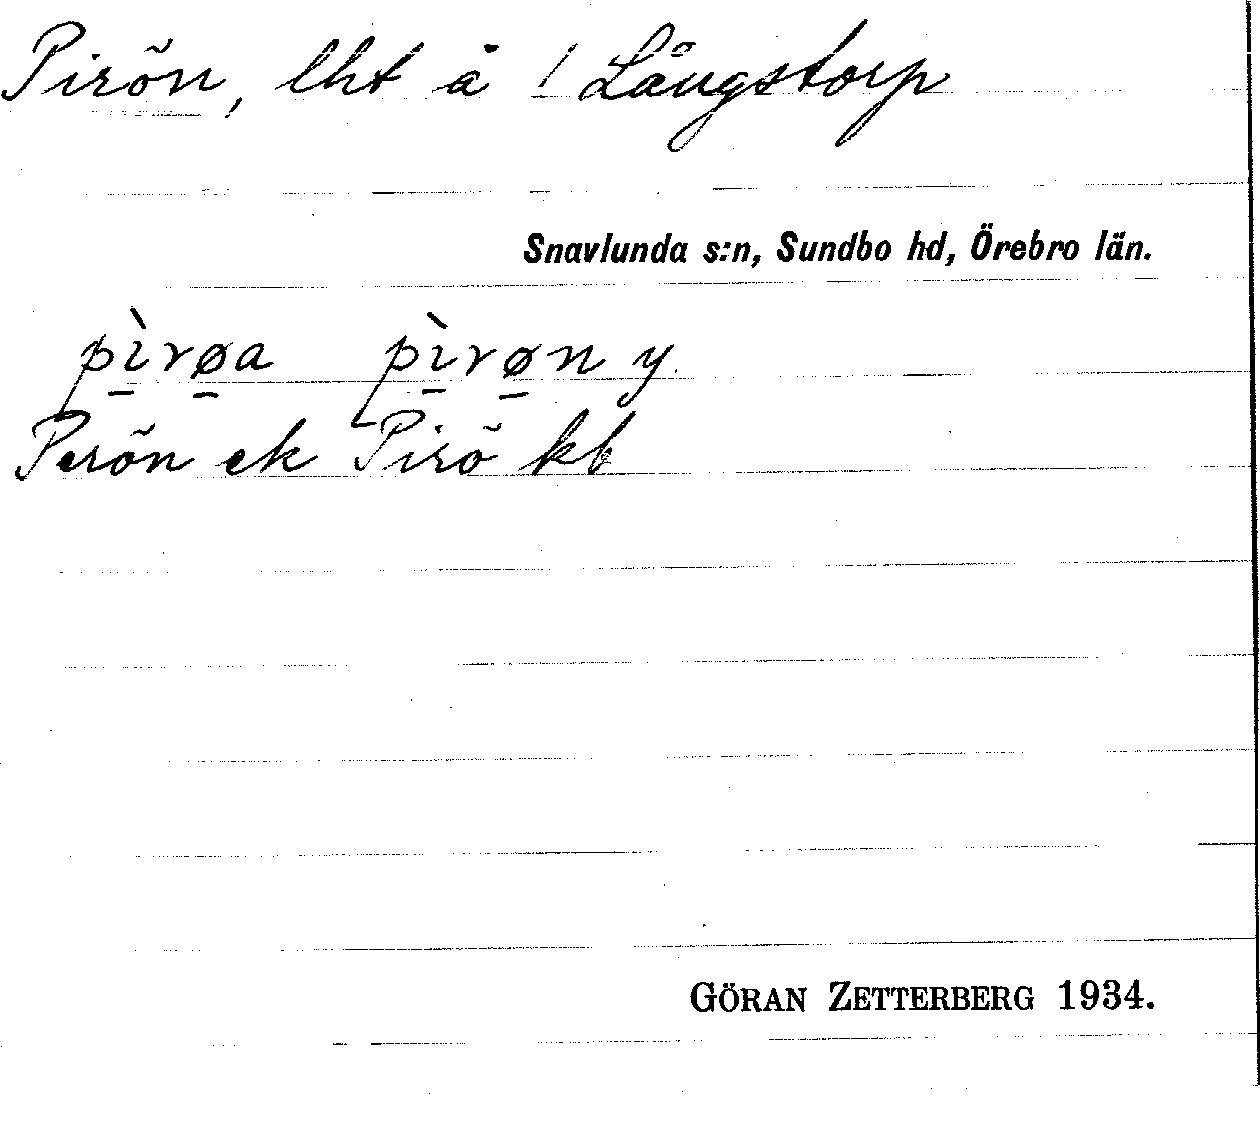 Pirön, lht å 1 Långstorp
Snavlunda s:n, Sundbo hd, Örebro län.
pìrøa pìrøn y.
Perön ek Pirö kb
GÖRAN ZETTERBERG 1934.